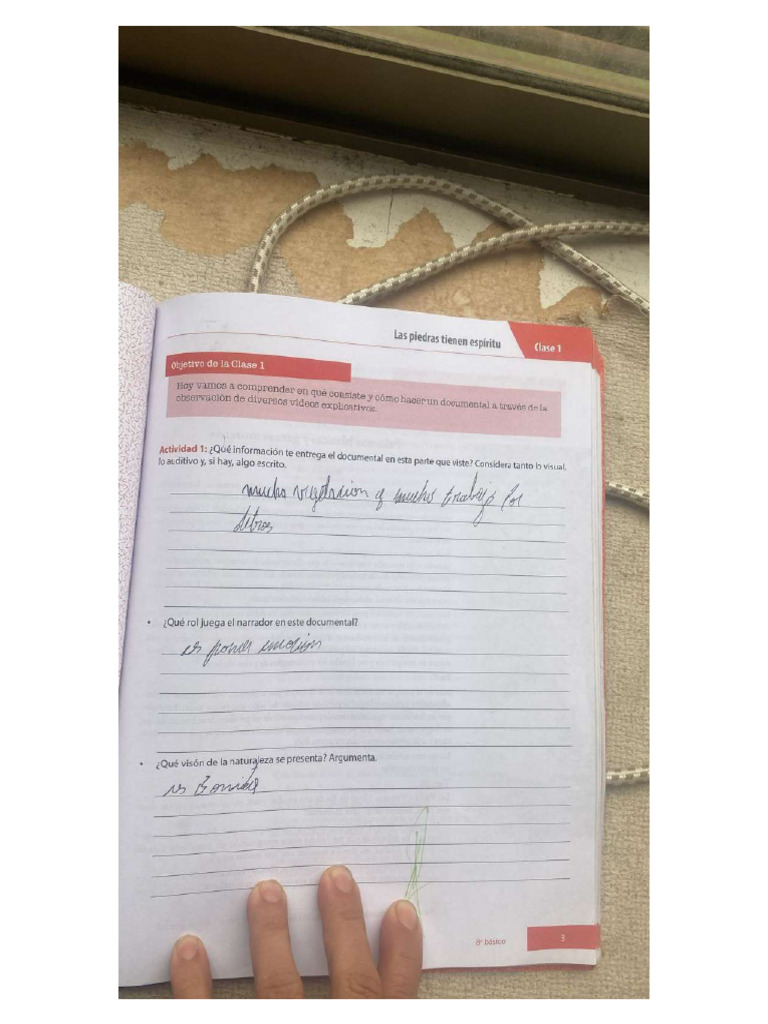 Las piedras tienen espíritu
Clase 1
Objetivo de la Clase 1
Hoy vamos a comprender en qué consiste y cómo hacer un documental a través de la
observación de diversos videos explicativos.
Actividad 1: ¿Qué información te entrega el documental en esta parte que viste? Considera tanto lo visual,
lo auditivo y, si hay, algo escrito.
mucha vegetacion y mucho trabajo por
detras
• ¿Qué rol juega el narrador en este documental?
es poner emocion
• ¿Qué visón de la naturaleza se presenta? Argumenta.
es Bonita
8° básico
3